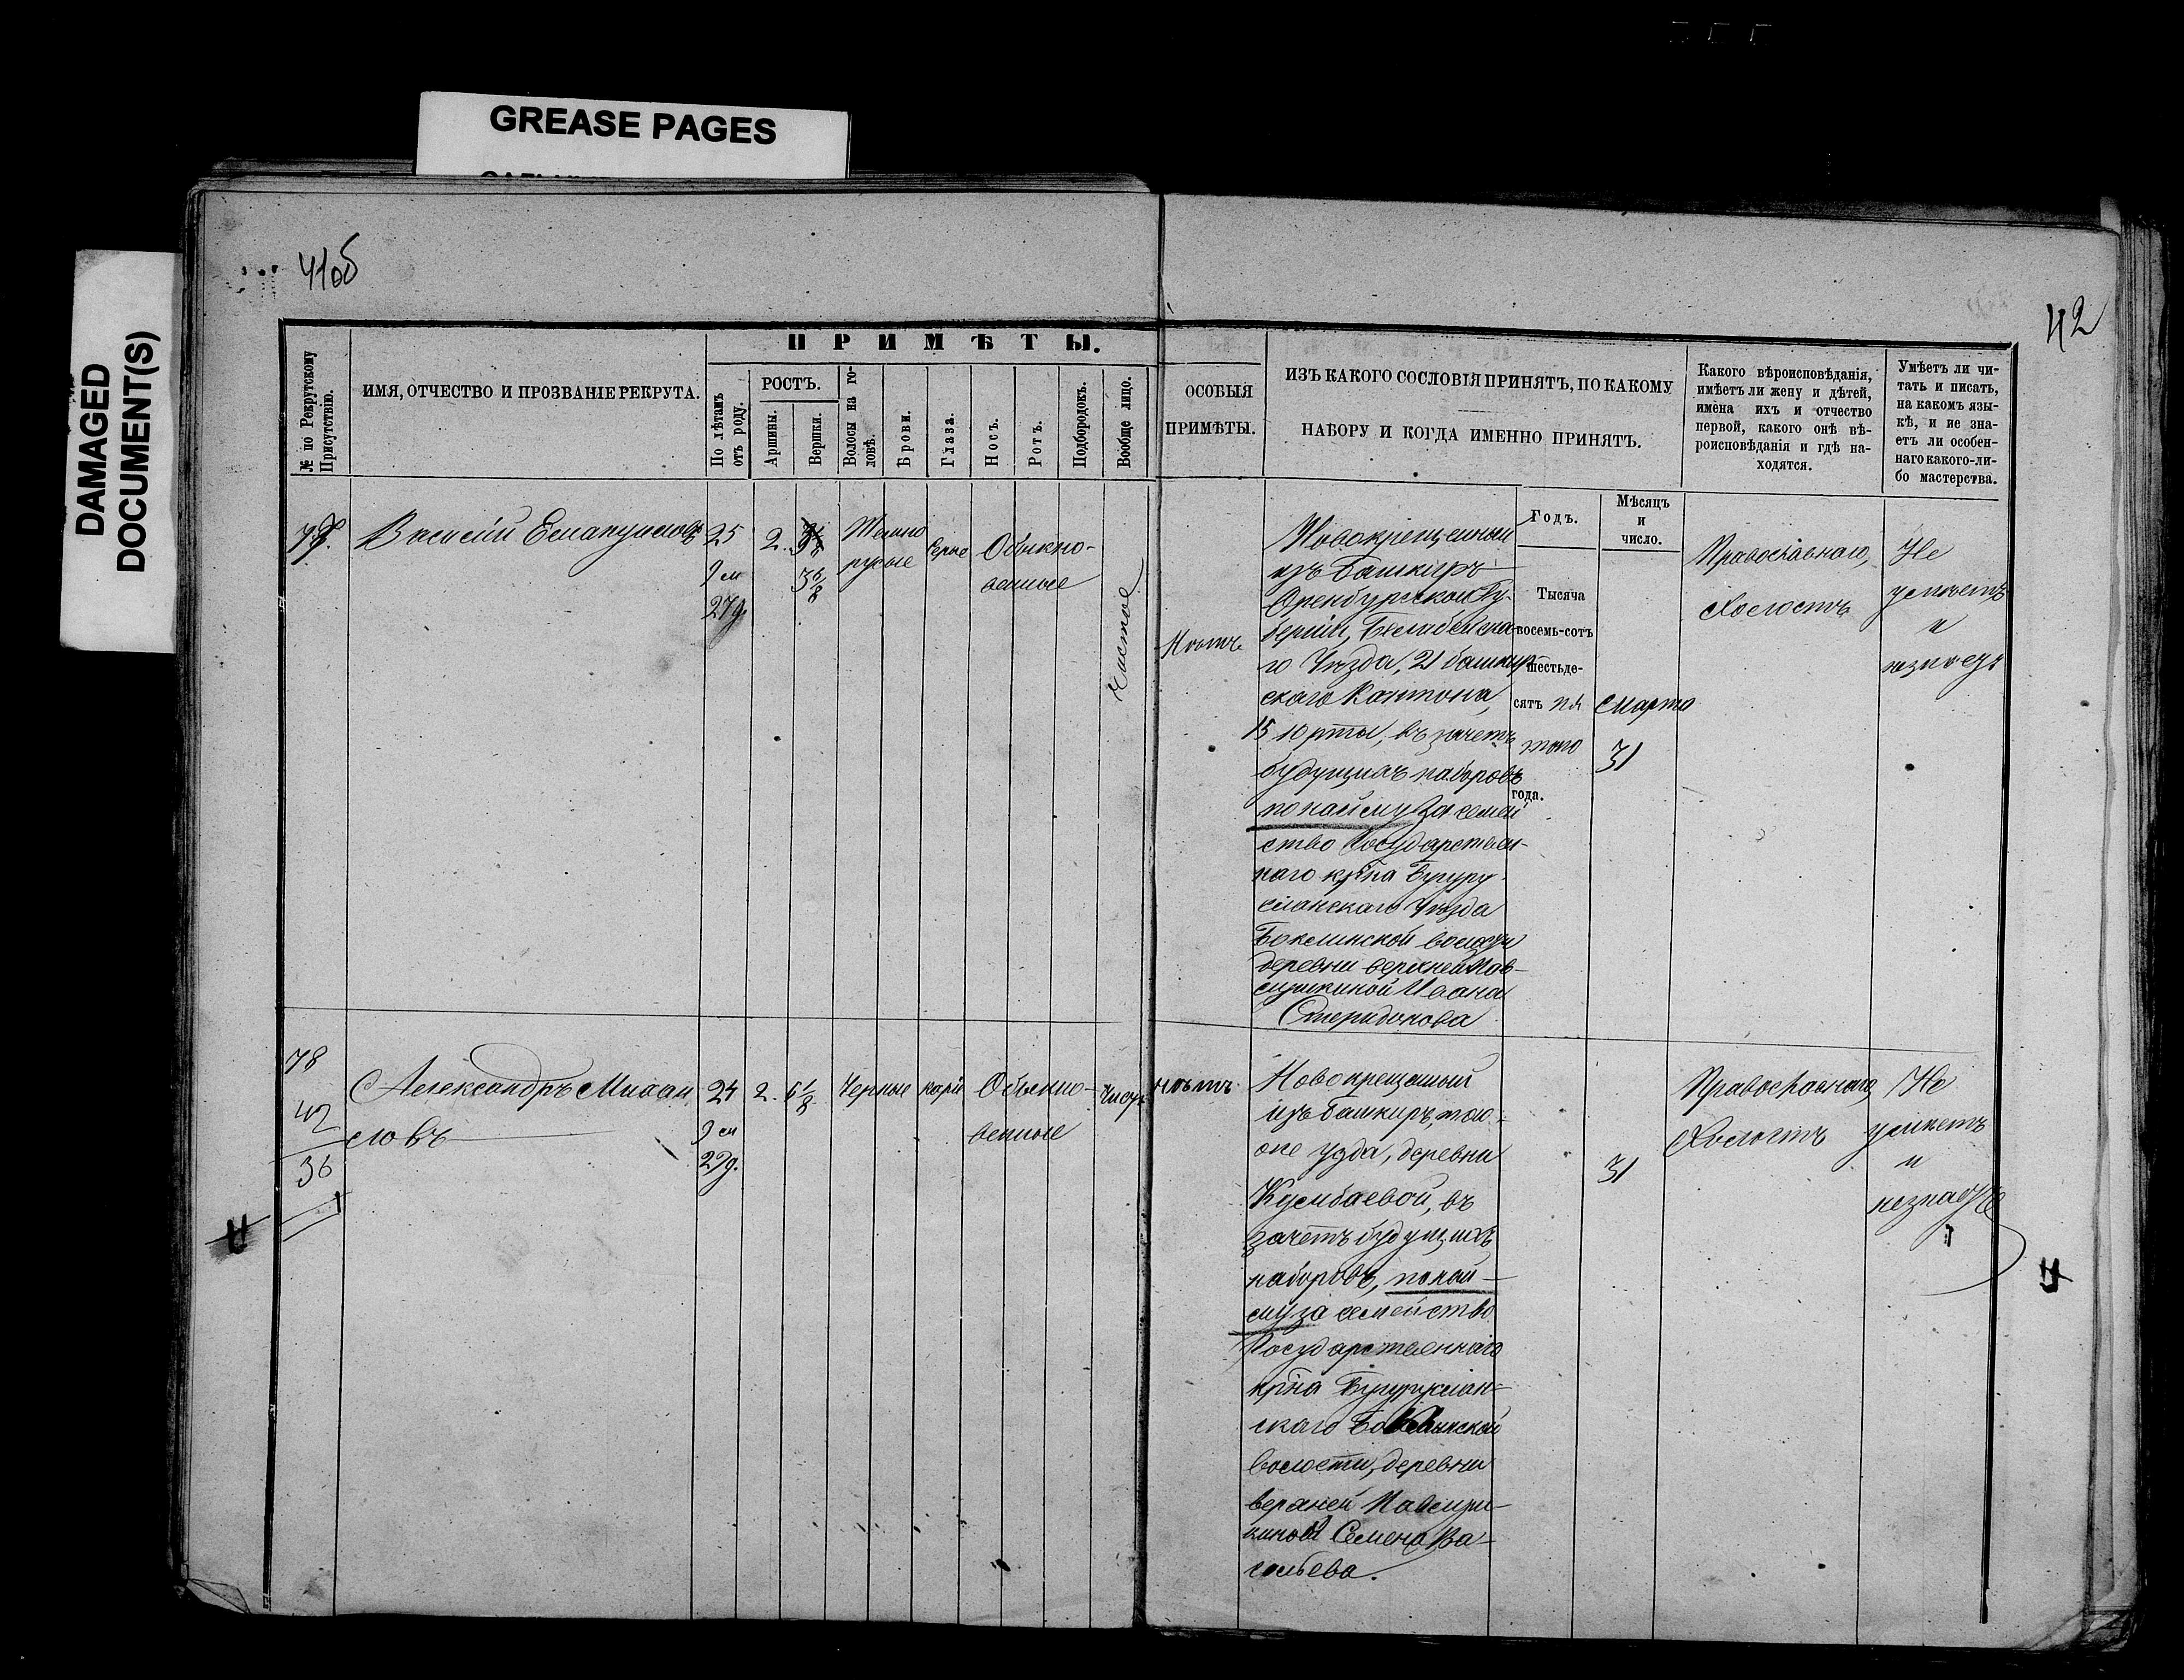 GREASE PAGES
DAMAGED
DOCUMENT(S)
41об
42
№ по Рекрутскому Присутствію.
ИМЯ, ОТЧЕСТВО И ПРОЗВАНІЕ РЕКРУТА.
ПРИМѢТЫ.
По лѣтамъ отъ роду.
РОСТЪ.
Аршины.
Вершки.
Волосы на го-
ловѣ.
Брови.
Глаза.
Носъ.
Ротъ.
Подбородокъ.
Вообще лицо.
ОСОБЫЯ
ПРИМѢТЫ.
ИЗЪ КАКОГО СОСЛОВІЯ ПРИНЯТЪ, ПО КАКОМУ
НАБОРУ И КОГДА ИМЕННО ПРИНЯТЪ.
Какого вѣроисповѣданія,
имѣетъ ли жену и дѣтей,
имена ихъ и отчество
первой, какого онѣ вѣ-
роисповѣданія и гдѣ на-
ходятся.
Умѣетъ ли чи-
тать и писать,
на какомъ язы-
кѣ, и не зна-
етъ ли особен-
наго какого-ли-
бо мастерства.
Годъ.
Мѣсяцъ
и
число.
Василій
25
27 д.
2.
3 6/8
Темно
русые
Обыкно-
венные
Чистое
Нѣтъ
Новокрещенный
изъ Башкиръ
Оренбургской Гу-
берніи, Белебейска-
го Уѣзда, 21 башкир
скаго Кантона,
15 юрты, въ зачетъ
будущихъ наборовъ
по найму за семей
ство Государствен-
наго кр-на Бугуру
сланскаго Уѣзда
Боклинской волости
деревни верхней Пав-
лушкиной Ивана
Спиридонова
Тысяча
восемь-сотъ
шестьде-
сятъ пя
таго
года.
марта
31
Православнаго,
Холостъ
Не
умѣетъ
и
незнаетъ
78
42
36
Александръ Михай
ловъ
24
22 д.
2. 6 1/8
Черные
карі
Обыкно-
венные
Чист
нѣтъ
Новокрещеный
изъ башкиръ, того
же уѣзда, деревни
въ
зачетъ будущихъ
наборовъ, по най-
му за семейство
Государственнаго
кр-на Бугуруслан-
скаго Боклинской
волости, деревни
верхней Павлуш-
киной Семена Ва-
сильева.
31
Православнаго
Холостъ
Не
умѣетъ
и
незнаетъ